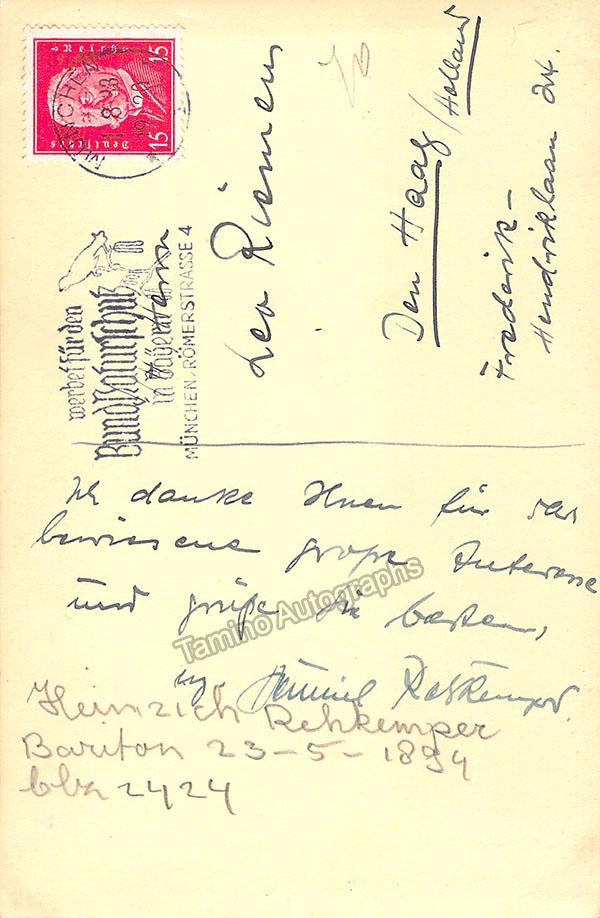 Deutsches Reich
15 15
MÜNCHEN
werbet für den
Bund Naturschutz
in Bayern
MÜNCHEN, RÖMERSTRASSE 4
Herrn
Leo Riemens
Den Haag/Holland
Frederik-
Hendriklaan 24.
Ich danke Ihnen für das
bewiesene große Interesse
und grüße Sie bestens,
Ihr Heinrich Rehkemper.
Heinrich Rehkemper
Bariton 23-5-1894
blz 2424
Tamino Autographs